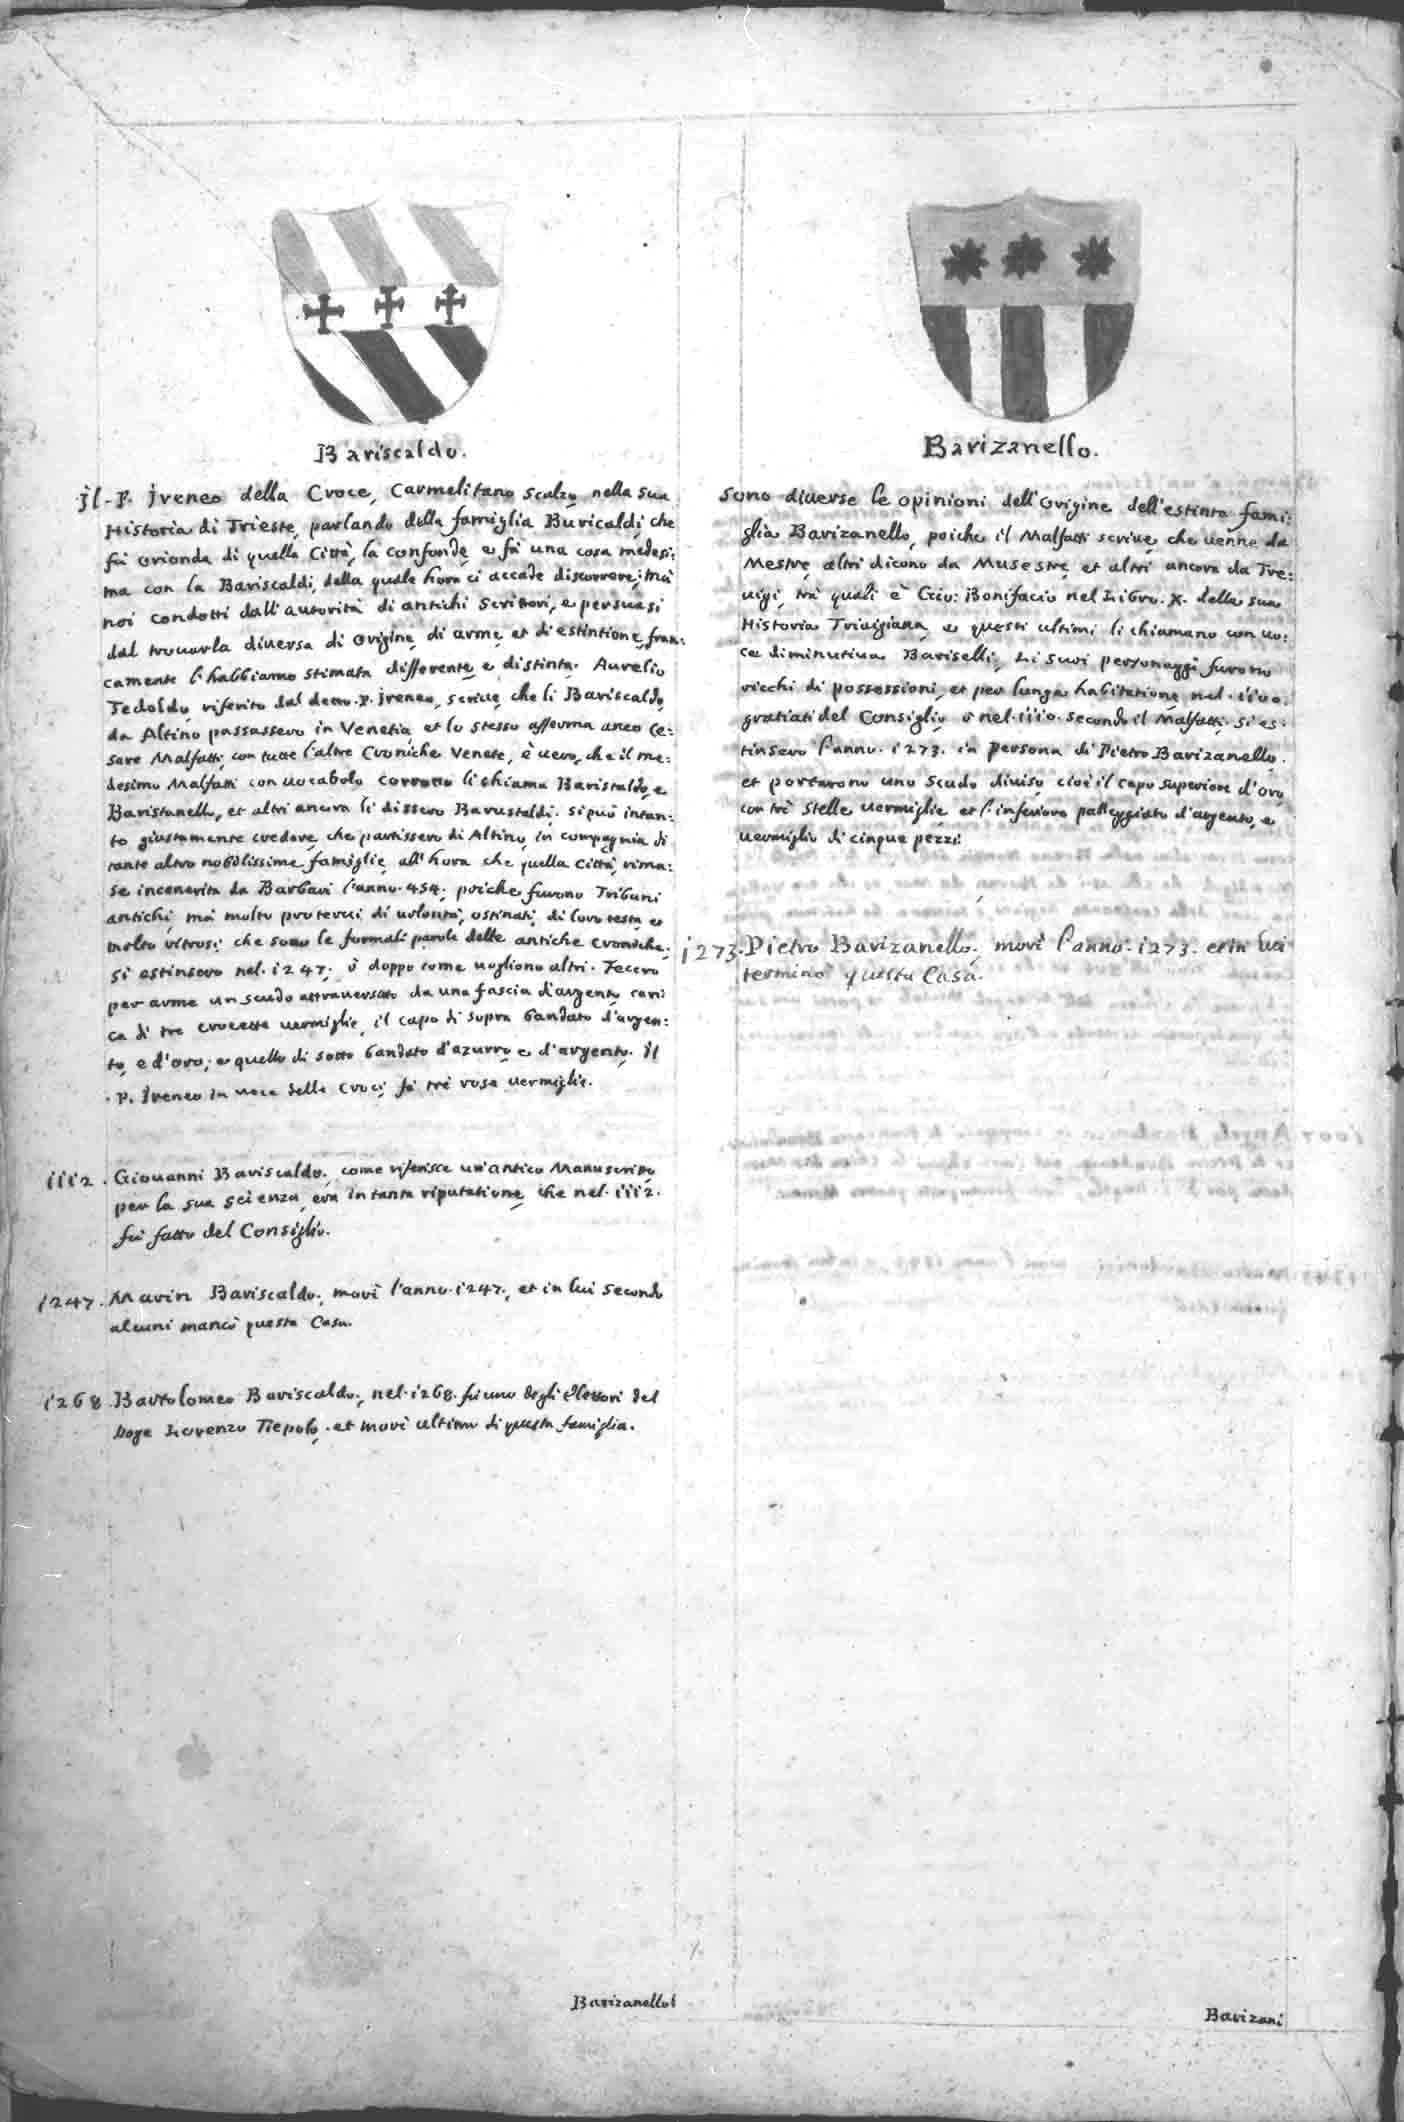 Bariscaldo.
il. P. Ireneo della Croce, Carmelitano scalzo nella sua
Historia di Trieste, parlando della famiglia Buricaldi, che
fù orionda di quella Città, la confonde, e fà una cosa medesi:
ma con la Bariscaldi, della quale hora ci accade discorrere; mà
noi condotti dall'autorità di antichi Scrittori, e persuasi
dal trouarla diuersa di origine, di arme, et d'estintione, fran:
camente l'habbiamo stimata differente, e distinta. Aurelio
Tedoldo, riferito dal detto. P. Ireneo, scriue, che li Bariscaldo,
da Altino passassero in Venetia, et lo stesso afferma anco Ce:
sare Malfatti, con tutte l'altre Croniche Venete, è uero, che il me:
desimo Malfatti con uocabolo corrotto li chiama Baristaldo, e
Baristanello, et altri ancora li dissero Barustaldi. si può intan:
to giustamente credere, che partissero di Altino, in compagnia di
tante altre nobilissime famiglie, all'hora che quella Città, rima:
se incenerita da Barbari l'anno. 454. poiche furono Tribuni
antichi, mà molto proterui, di uolontà, ostinati, di loro testa, e
molto ritrosi; che sono le formali parole delle antiche Croniche.
si estinsero nel. 1247. ò doppo come uogliono altri. Fecero
per arme un scudo attrauersato da una fascia d'argento, cari:
ca di tre crocette uermiglie, il capo di sopra bandato d'argen:
to, e d'oro; e quello di sotto bandato d'azurro, e d'argento. il
. P. Ireneo in uece delle Croci, fà trè rose uermiglie.
1112. Giouanni Bariscaldo, come riferisce un'antico Manuscritto,
per la sua scienza, era in tanta riputatione, che nel. 1112.
fù fatto del Consiglio.
1247. Marin Bariscaldo, morì l'anno. 1247., et in lui secondo
alcuni mancò questa Casa.
1268. Bartolomeo Bariscaldo, nel. 1268. fù uno degli Elettori del
Doge Lorenzo Tiepolo. et morì ultimo di questa famiglia.
Barizanello
Barizanello.
sono diuerse le opinioni dell'origine dell'estinta fami:
glia Barizanello, poiche il Malfatti scriue, che uenne da
Mestre, altri dicono da Musestre, et altri ancora da Tre:
uigi, trà quali è Gio: Bonifacio nel Libro. X. della sua
Historia Triuigiana, e questi ultimi li chiamano con uo:
ce diminutiua Bariselli, Li suoi personaggi furono
ricchi di possessioni, et per lunga habitatione, nel. 1100.
gratiati del Consiglio, ò nel. 1110. secondo il Malfatti. si es:
tinsero l'anno. 1273. in persona di Pietro Barizanello.
et portarono uno scudo diuiso, cioè il capo superiore d'oro,
con trè stelle uermiglie, et l'inferiore palleggiato d'argento, e
uermiglio di cinque pezzi.
1273. Pietro Barizanello, morì l'anno. 1273. et in lui
terminò questa Casa.
Barizani